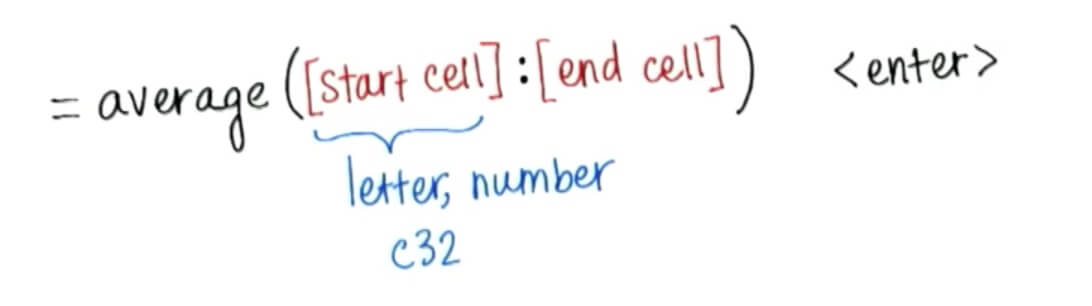 = average ([start cell]:[end cell]) <enter>
letter, number
c32